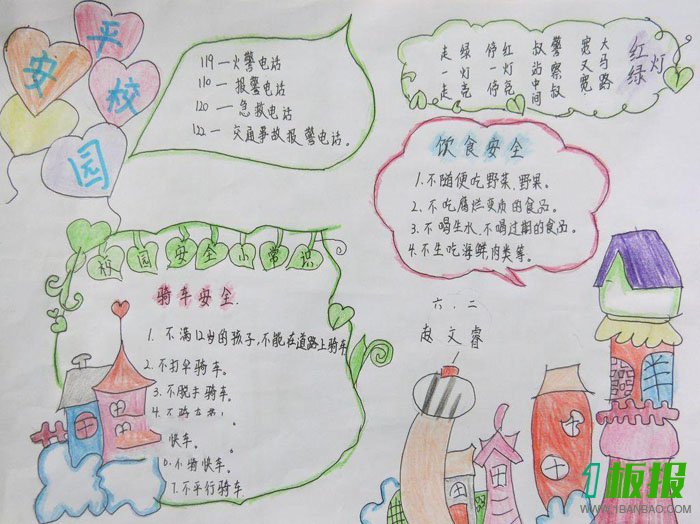 平安校园
119—火警电话
110—报警电话
120—急救电话
122—交通事故报警电话。
红绿灯
大马路
宽又宽
警察叔
叔站中间
红灯亮
停一停
绿灯亮
走一走
饮食安全
1.不随便吃野菜、野果。
2.不吃腐烂变质的食品。
3.不喝生水、不喝过期的食品
4.不生吃海鲜肉类等。
校园安全小常识
骑车安全
1.不满12岁的孩子,不能在道路上骑车
2.不打伞骑车。
3.不脱手骑车。
4.不骑
快车。
6.不骑快车。
7.不平行骑车
六.二
赵文睿
1板报
WWW.1BANBAO.COM